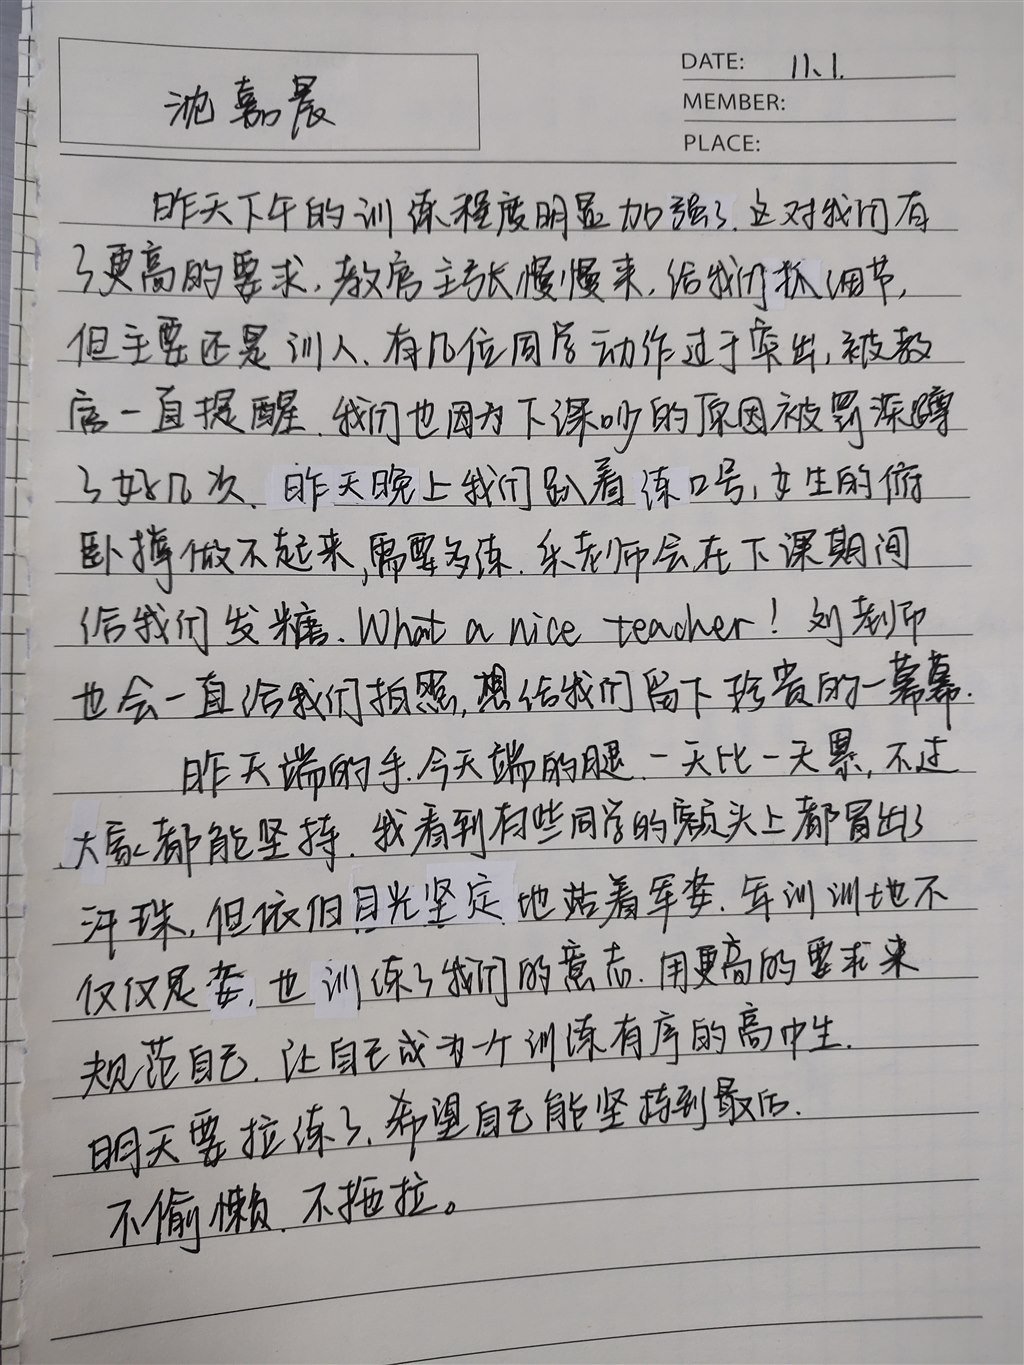 沈嘉晨
DATE: 11.1.
MEMBER:
PLACE:
昨天下午的训练程度明显加强了.这对我们有
了更高的要求,教官主张慢慢来,给我们抓细节,
但主要还是训人.有几位同学动作过于突出,被教
官一直提醒.我们也因为下课吵的原因被罚深蹲
了好几次.昨天晚上我们趴着练口号,女生的俯
卧撑做不起来,需要多练.朱老师会在下课期间
给我们发糖.What a nice teacher!刘老师
也会一直给我们拍照,想给我们留下珍贵的一幕幕.
昨天端的手.今天端的腿.一天比一天累,不过
大家都能坚持.我看到有些同学的额头上都冒出了
汗珠,但依旧目光坚定地站着军姿.军训训地不
仅仅是姿,也训练了我们的意志.用更高的要求来
规范自己.让自己成为一个训练有序的高中生.
明天要拉练了.希望自己能坚持到最后.
不偷懒.不拖拉。